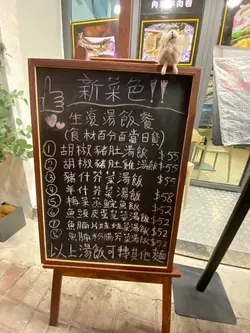 新菜色!!
生滾湯飯餐
(食材百分百當日貨)
① 胡椒豬肚湯飯 $55
② 胡椒豬肚雞湯飯 $55
③ 豬什芥菜湯飯 $55
④ 羊什芥菜湯飯 $58
⑤ 梅菜蒸鯇魚飯 $52
⑥ 魚頭皮蛋芫茜湯飯 $52
⑦ 魚腩片

湯飯 $52
⑧ 魚腩粉腸芥菜湯飯 $52
以上湯飯可轉其他麵